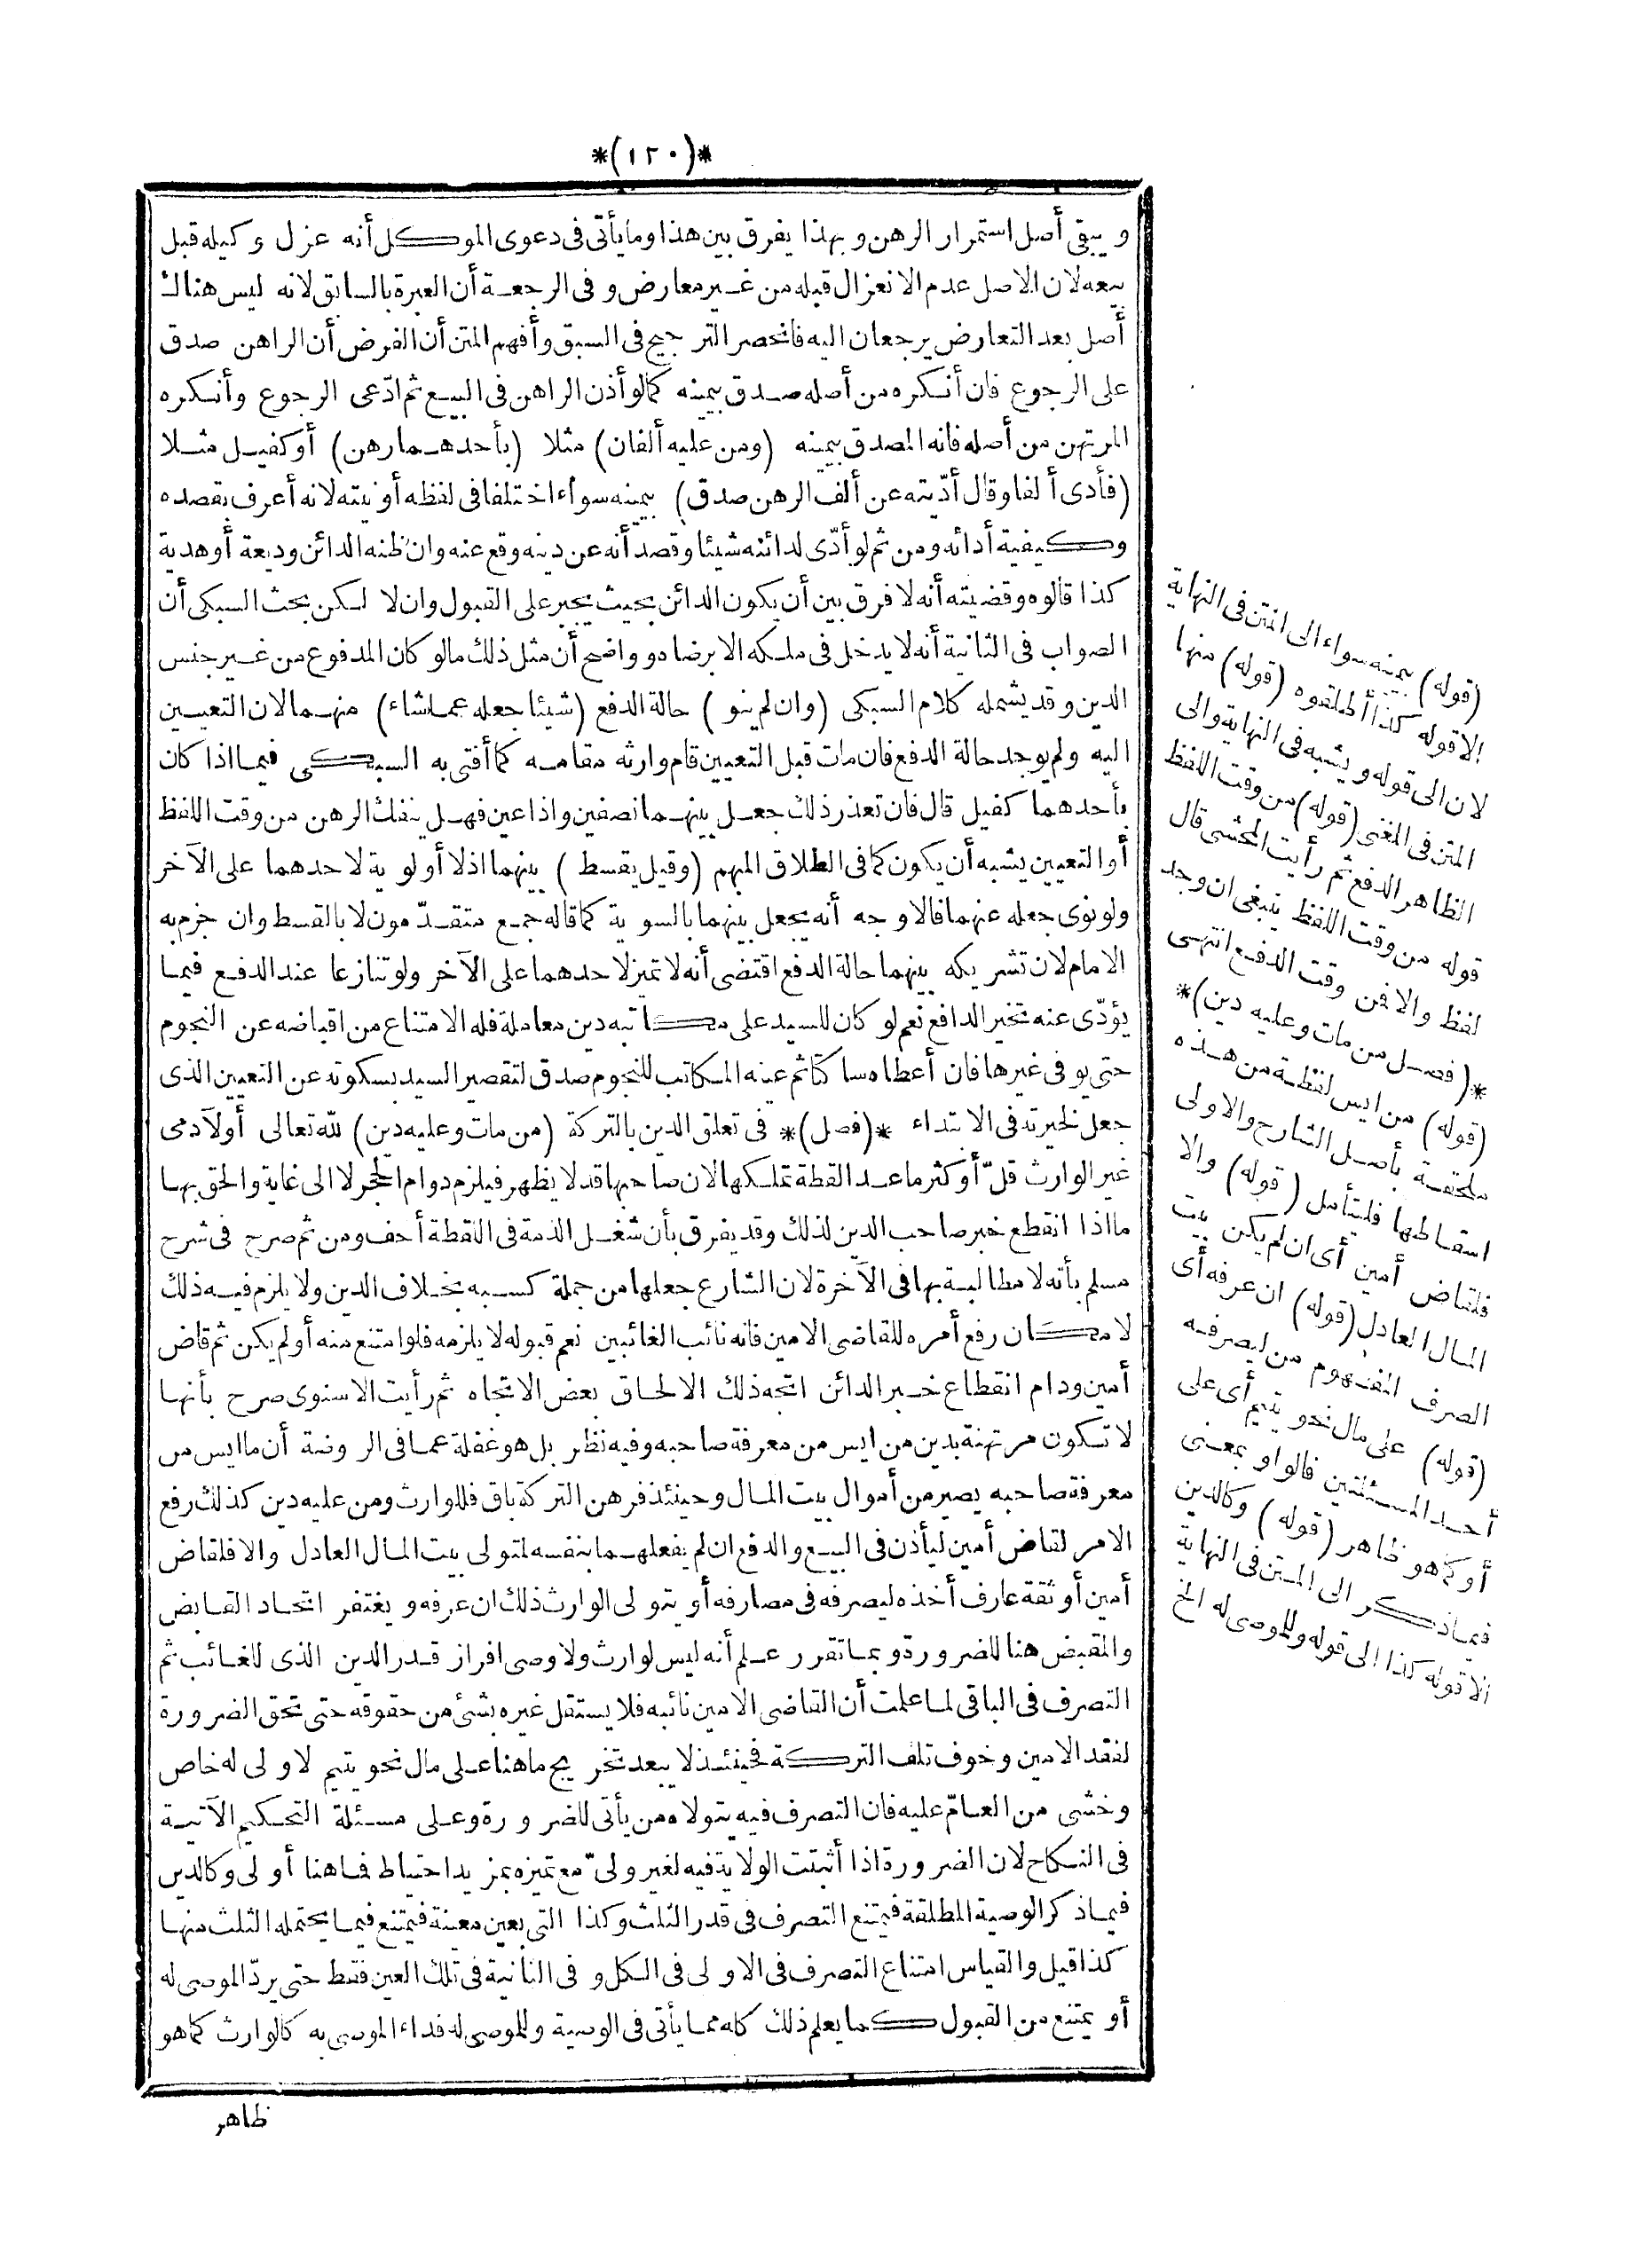 *(١٢٠)*
ويبقى أصل استمرار الرهن وبهذا يفرق بين هذا وما يأتى فى دعوى الموكل أنه عزل وكيله قبل
بيعه لان الاصل عدم الانعزال قبله من غير معارض وفى الرجعة أن العبرة بالسابق لانه ليس هناك
أصل بعد التعارض يرجعان اليه فانحصر الترجيح فى السبق وأفهم المتن أن الفرض أن الراهن صدق
على الرجوع فان أنكره من أصله صدق بيمينه كما لو أذن الراهن فى البيع ثم ادّعى الرجوع وأنكره
المرتهن من أصله فانه المصدق بيمينه (ومن عليه ألفان) مثلا (بأحدهما رهن) أو كفيل مثلا
(فأدى ألفا وقال أدّيته عن ألف الرهن صدق) بيمينه سواء اختلفا فى لفظه أو نيته لانه أعرف بقصده
وكيفية أدائه ومن ثم لو أدّى لدائنه شيئا وقصد أنه عن دينه وقع عنه وان ظنه الدائن وديعة أو هدية
كذا قالوه وقضيته أنه لا فرق بين أن يكون الدائن بحيث يجبر على القبول وان لا لكن بحث السبكى أن
الصواب فى الثانية أنه لا يدخل فى ملكه الا برضاه وواضح أن مثل ذلك ما لو كان المدفوع من غير جنس
الدين وقد يشمله كلام السبكى (وان لم ينو) حالة الدفع (شيئا جعله عما شاء) منهما لان التعيين
اليه ولم يوجد حالة الدفع فان مات قبل التعيين قام وارثه مقامه كما أفتى به السبكى فيما اذا كان
بأحدهما كفيل قال فان تعذر ذلك جعل بينهما نصفين واذا عين فهل ينفك الرهن من وقت اللفظ
أو التعيين يشبه أن يكون كما فى الطلاق المبهم (وقيل يقسط) بينهما اذ لا أولوية لاحدهما على الآخر
ولو نوى جعله عنهما فالاوجه أنه يجعل بينهما بالسوية كما قاله جمع متقدّمون لا بالقسط وان جزم به
الامام لان تشريكه بينهما حالة الدفع اقتضى أنه لا تميز لاحدهما على الآخر ولو تنازعا عند الدفع فيما
يؤدّى عنه تخير الدافع نعم لو كان للسيد على مكاتبه دين معاملة فله الامتناع من اقباضه عن النجوم
حتى يوفى غيرها فان أعطاه ساكتا ثم عينه المكاتب للنجوم صدق لتقصير السيد بسكوته عن التعيين الذى
جعل لخيرته فى الابتداء *(فصل)* فى تعلق الدين بالتركة (من مات وعليه دين) لله تعالى أو لآدمى
غير الوارث قلّ أو كثر ما عدا لقطة تملكها لان صاحبها قد لا يظهر فيلزم دوام الحجر لا الى غاية والحق بها
ما اذا انقطع خبر صاحب الدين لذلك وقد يفرق بأن شغل الذمة فى اللقطة أخف ومن ثم صرح فى شرح
مسلم بأنه لا مطالبة بها فى الآخرة لان الشارع جعلها من جملة كسبه بخلاف الدين ولا يلزم فيه ذلك
لامكان رفع أمره للقاضى الامين فانه نائب الغائبين نعم قبوله لا يلزمه فلو امتنع منه أو لم يكن ثم قاض
أمين ودام انقطاع خبر الدائن اتجه ذلك الالحاق بعض الاتجاه ثم رأيت الاسنوى صرح بأنها
لا تكون مرتهنة بدين من ايس من معرفة صاحبه وفيه نظر بل هو غفلة عما فى الروضة أن ما ايس من
معرفة صاحبه يصير من أموال بيت المال وحينئذ فرهن التركة باق فللوارث ومن عليه دين كذلك رفع
الامر لقاض أمين ليأذن فى البيع والدفع ان لم يفعلهما بنفسه لمتولى بيت المال العادل والا فلقاض
أمين أو ثقة عارف أخذه ليصرفه فى مصارفه أو يتولى الوارث ذلك ان عرفه ويغتفر اتحاد القابض
والمقبض هنا للضرورة وبما تقرر علم أنه ليس لوارث ولا وصى افراز قدر الدين الذى للغائب ثم
التصرف فى الباقى لما علمت أن القاضى الامين نائبه فلا يستقل غيره بشئ من حقوقه حتى تحق الضرورة
لفقد الامين وخوف تلف التركة فحينئذ لا يبعد تخريج ما هنا على مال نحو يتيم لا ولى له خاص
وخشى من العامّ عليه فان التصرف فيه يتولاه من يأتى للضرورة وعلى مسئلة التحكيم الآتية
فى النكاح لان الضرورة اذا أثبتت الولاية فيه لغير ولىّ مع تميزه بمزيد احتياط فما هنا أولى وكالدين
فيما ذكر الوصية المطلقة فيمتنع التصرف فى قدر الثلث وكذا التى بعين معينة فيمتنع فيما يحتمله الثلث منها
كذا قيل والقياس امتناع التصرف فى الاولى فى الكل وفى الثانية فى تلك العين فقط حتى يردّ الموصى له
أو يمتنع من القبول كما يعلم ذلك كله مما يأتى فى الوصية وللموصى له فداء الموصى به كالوارث كما هو
ظاهر
(قوله) بيمينه سواء الى المتن فى النهاية
الا قوله كذا أطلقوه (قوله) منها
لان الى قوله ويشبه فى النهاية والى
المتن فى المغنى (قوله) من وقت اللفظ
الظاهر الدفع ثم رأيت المحشى قال
قوله من وقت اللفظ ينبغى ان وجد
لفظ والا فمن وقت الدفع انتهى
*(فصل من مات وعليه دين)*
(قوله) من ايس لفظة من هذه
ملحقة بأصل الشارح والاولى
اسقاطها فليتأمل (قوله) والا
فلقاض أمين أى ان لم يكن بيت
المال العادل (قوله) ان عرفه أى
الصرف المفهوم من ليصرفه
(قوله) على مال نحو يتيم أى على
أحد المسئلتين فالواو بمعنى
أو كما هو ظاهر (قوله) وكالدين
فيما ذكر الى المتن فى النهاية
الا قوله كذا الى قوله وللموصى له الخ